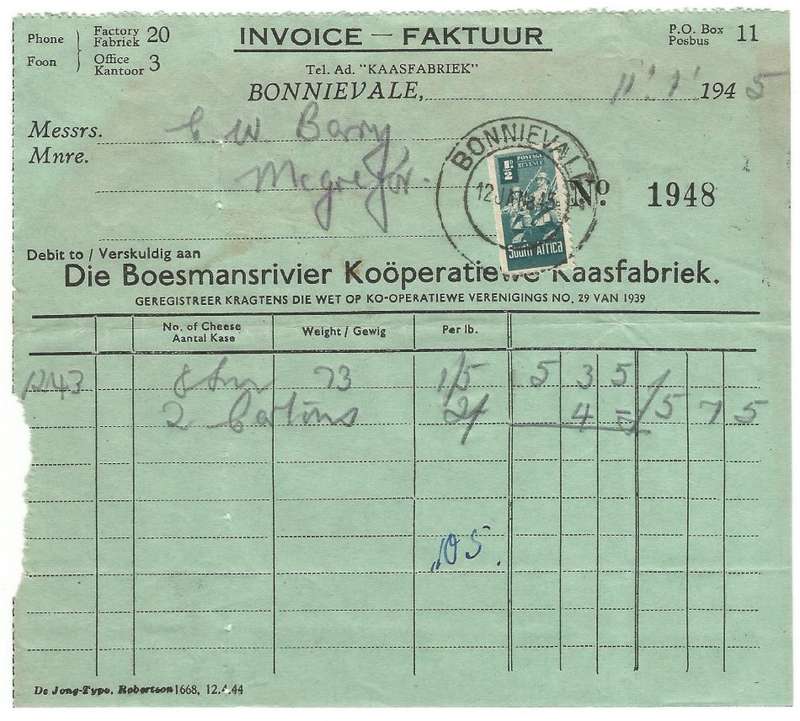 Phone Factory Fabriek 20
Foon Office Kantoor 3
INVOICE — FAKTUUR
P.O. Box Posbus 11
Tel. Ad. "KAASFABRIEK"
BONNIEVALE, 11.1. 1945
Messrs. C W Barry
Mnre. Mcgregor.
BONNIEVALE
12 JAN 45
POSTAGE REVENUE
South Africa
No. 1948
Debit to / Verskuldig aan
Die Boesmansrivier Koöperatiewe Kaasfabriek.
GEREGISTREER KRAGTENS DIE WET OP KO-OPERATIEWE VERENIGINGS NO. 29 VAN 1939
No. of Cheese Aantal Kase Weight / Gewig Per lb.
73 1/5 5 3 5
2 Cartons 2/ 4 5 7 5
105.
De Jong-Typo, Robertson 1668, 12.4.44